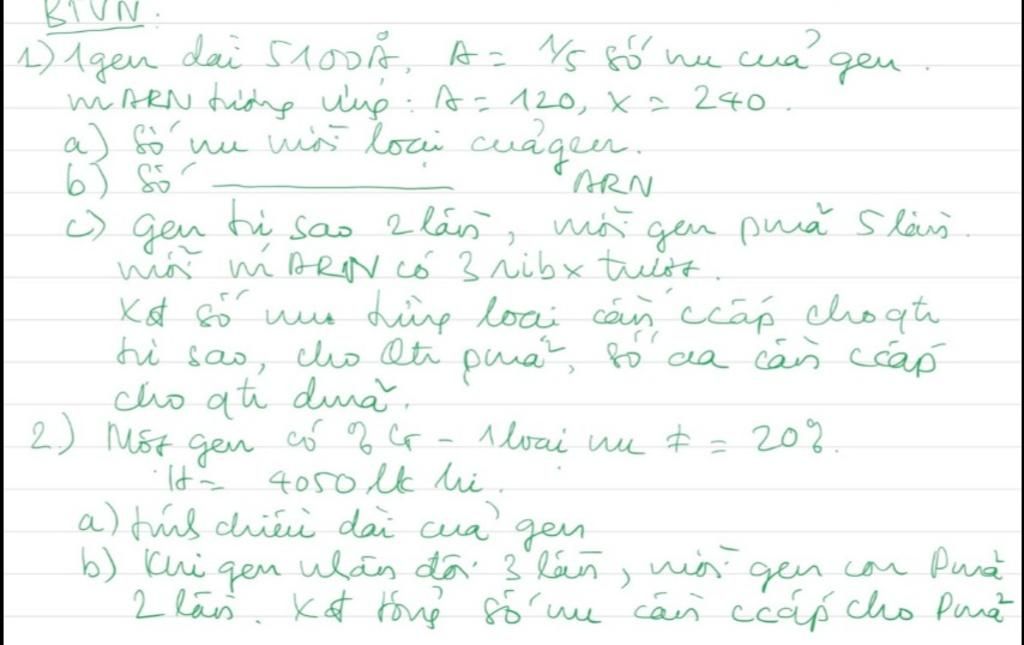 BTVN:
1) 1 gen dài 5100Å, A = 1/5 số nu của gen.
mARN tương ứng: A = 120, X = 240.
a) Số nu mỗi loại của gen.
b) Số ——— ARN
c) Gen tự sao 2 lần, mỗi gen pmã 5 lần.
mỗi mARN có 3 ribx trượt.
Xđ số nu từng loại cần ccấp cho qtr
tự sao, cho Qtr pmã, số aa cần ccấp
cho qtr dmã.
2.) Một gen có % G - 1 loại nu ≠ = 20%.
H = 4050 lk hi.
a) tính chiều dài của gen
b) Khi gen nhân đôi 3 lần, mỗi gen con Pmã
2 lần. Xđ tổng số nu cần ccấp cho Pmã